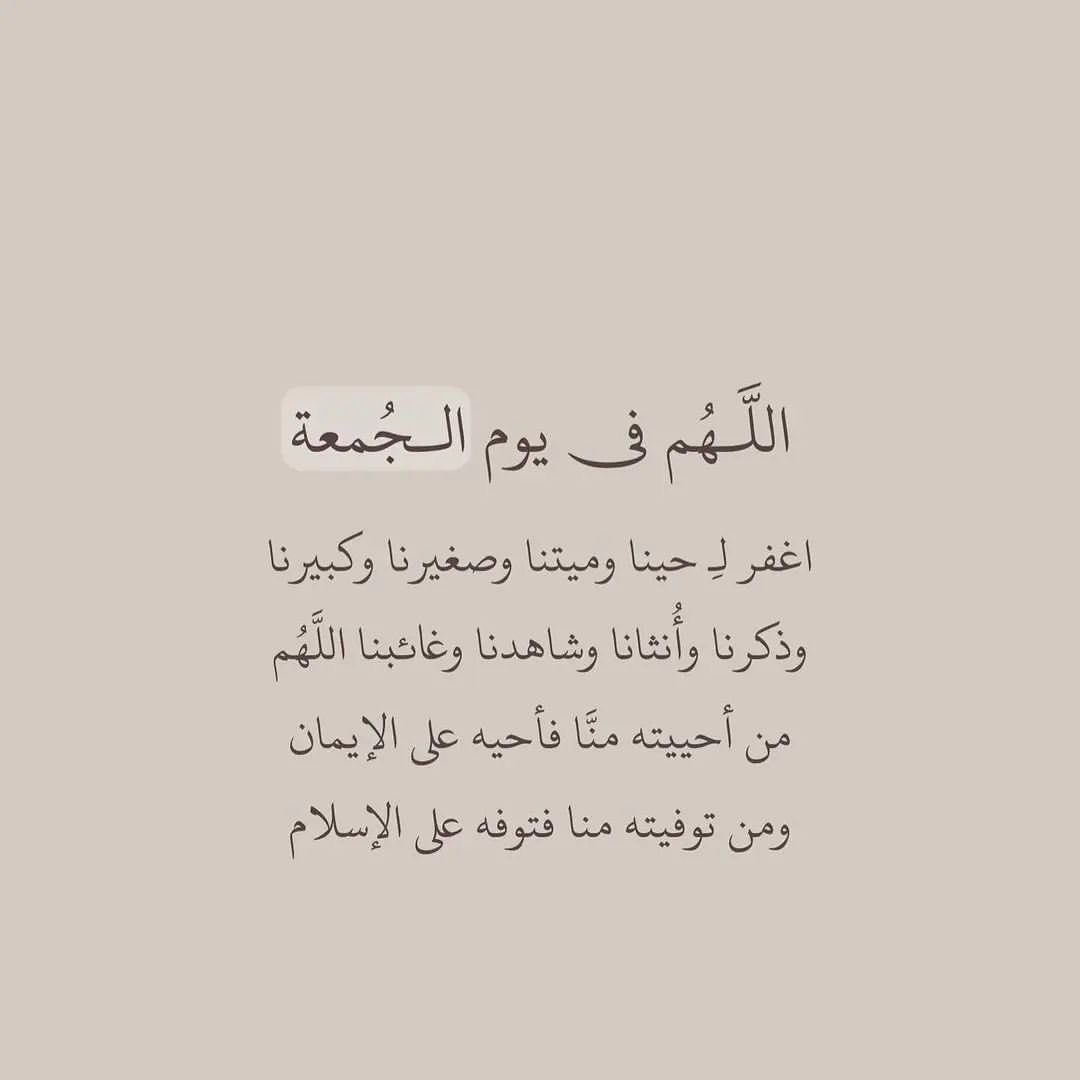 اللَّـهُم فى يوم الـجُمعة
اغفر لـِ حينا وميتنا وصغيرنا وكبيرنا
وذكرنا وأُنثانا وشاهدنا وغائبنا اللَّهُم
من أحييته منَّا فأحيه على الإيمان
ومن توفيته منا فتوفه على الإسلام